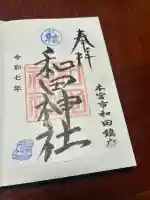 奉拝
本宮市和田鎮座
和田神社
令和七年